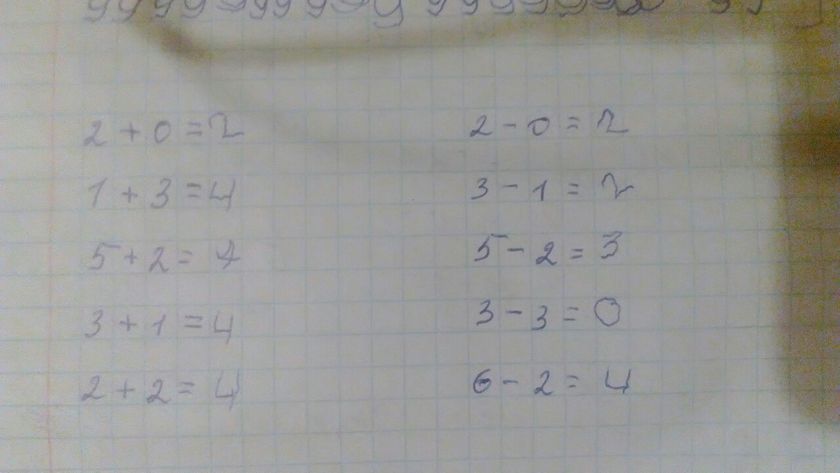 2 + 0 = 2
1 + 3 = 4
5 + 2 = 7
3 + 1 = 4
2 + 2 = 4
2 - 0 = 2
3 - 1 = 2
5 - 2 = 3
3 - 3 = 0
6 - 2 = 4